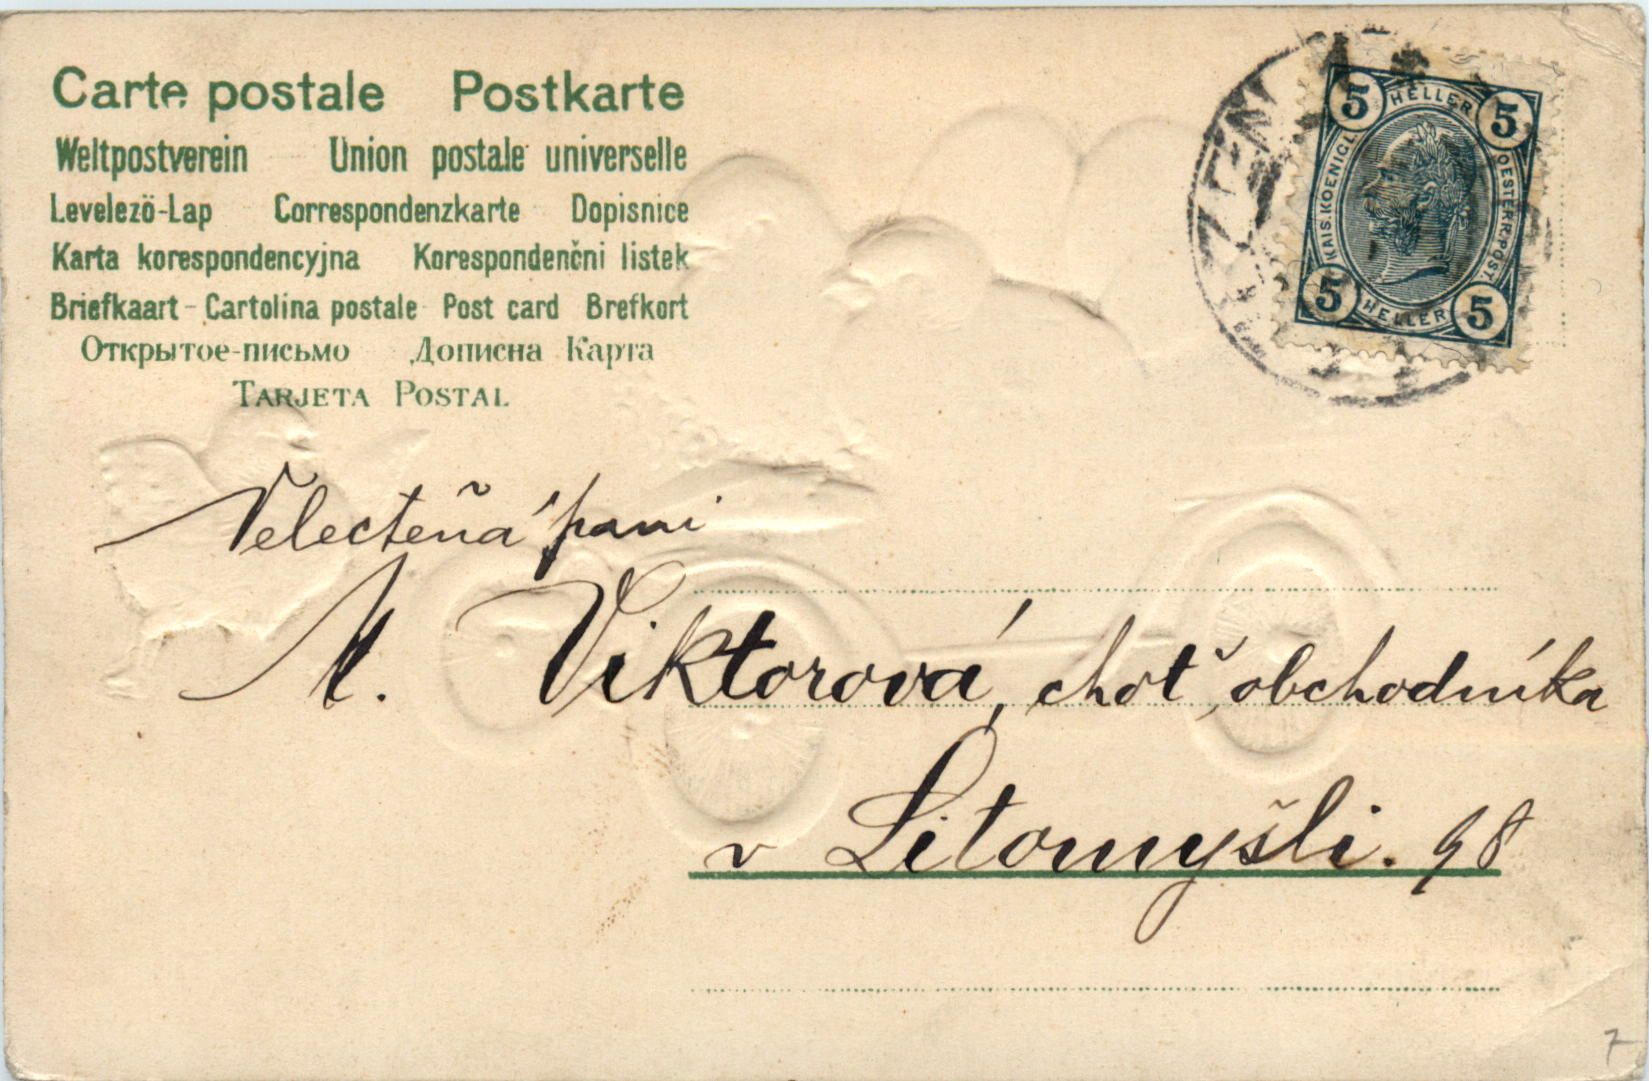 Carte postale Postkarte
Weltpostverein Union postale universelle
Levelezö-Lap Correspondenzkarte Dopisnice
Karta korespondencyjna Korespondenčni listek
Briefkaart - Cartolina postale Post card Brefkort
Открытое-письмо Дописна Карта
TARJETA POSTAL
5 HELLER 5
KAIS. KOENIGL. OESTERR. POST.
5 HELLER 5
Velectěná paní
M. Viktorová, choť obchodníka
v Litomyšli. 98
7